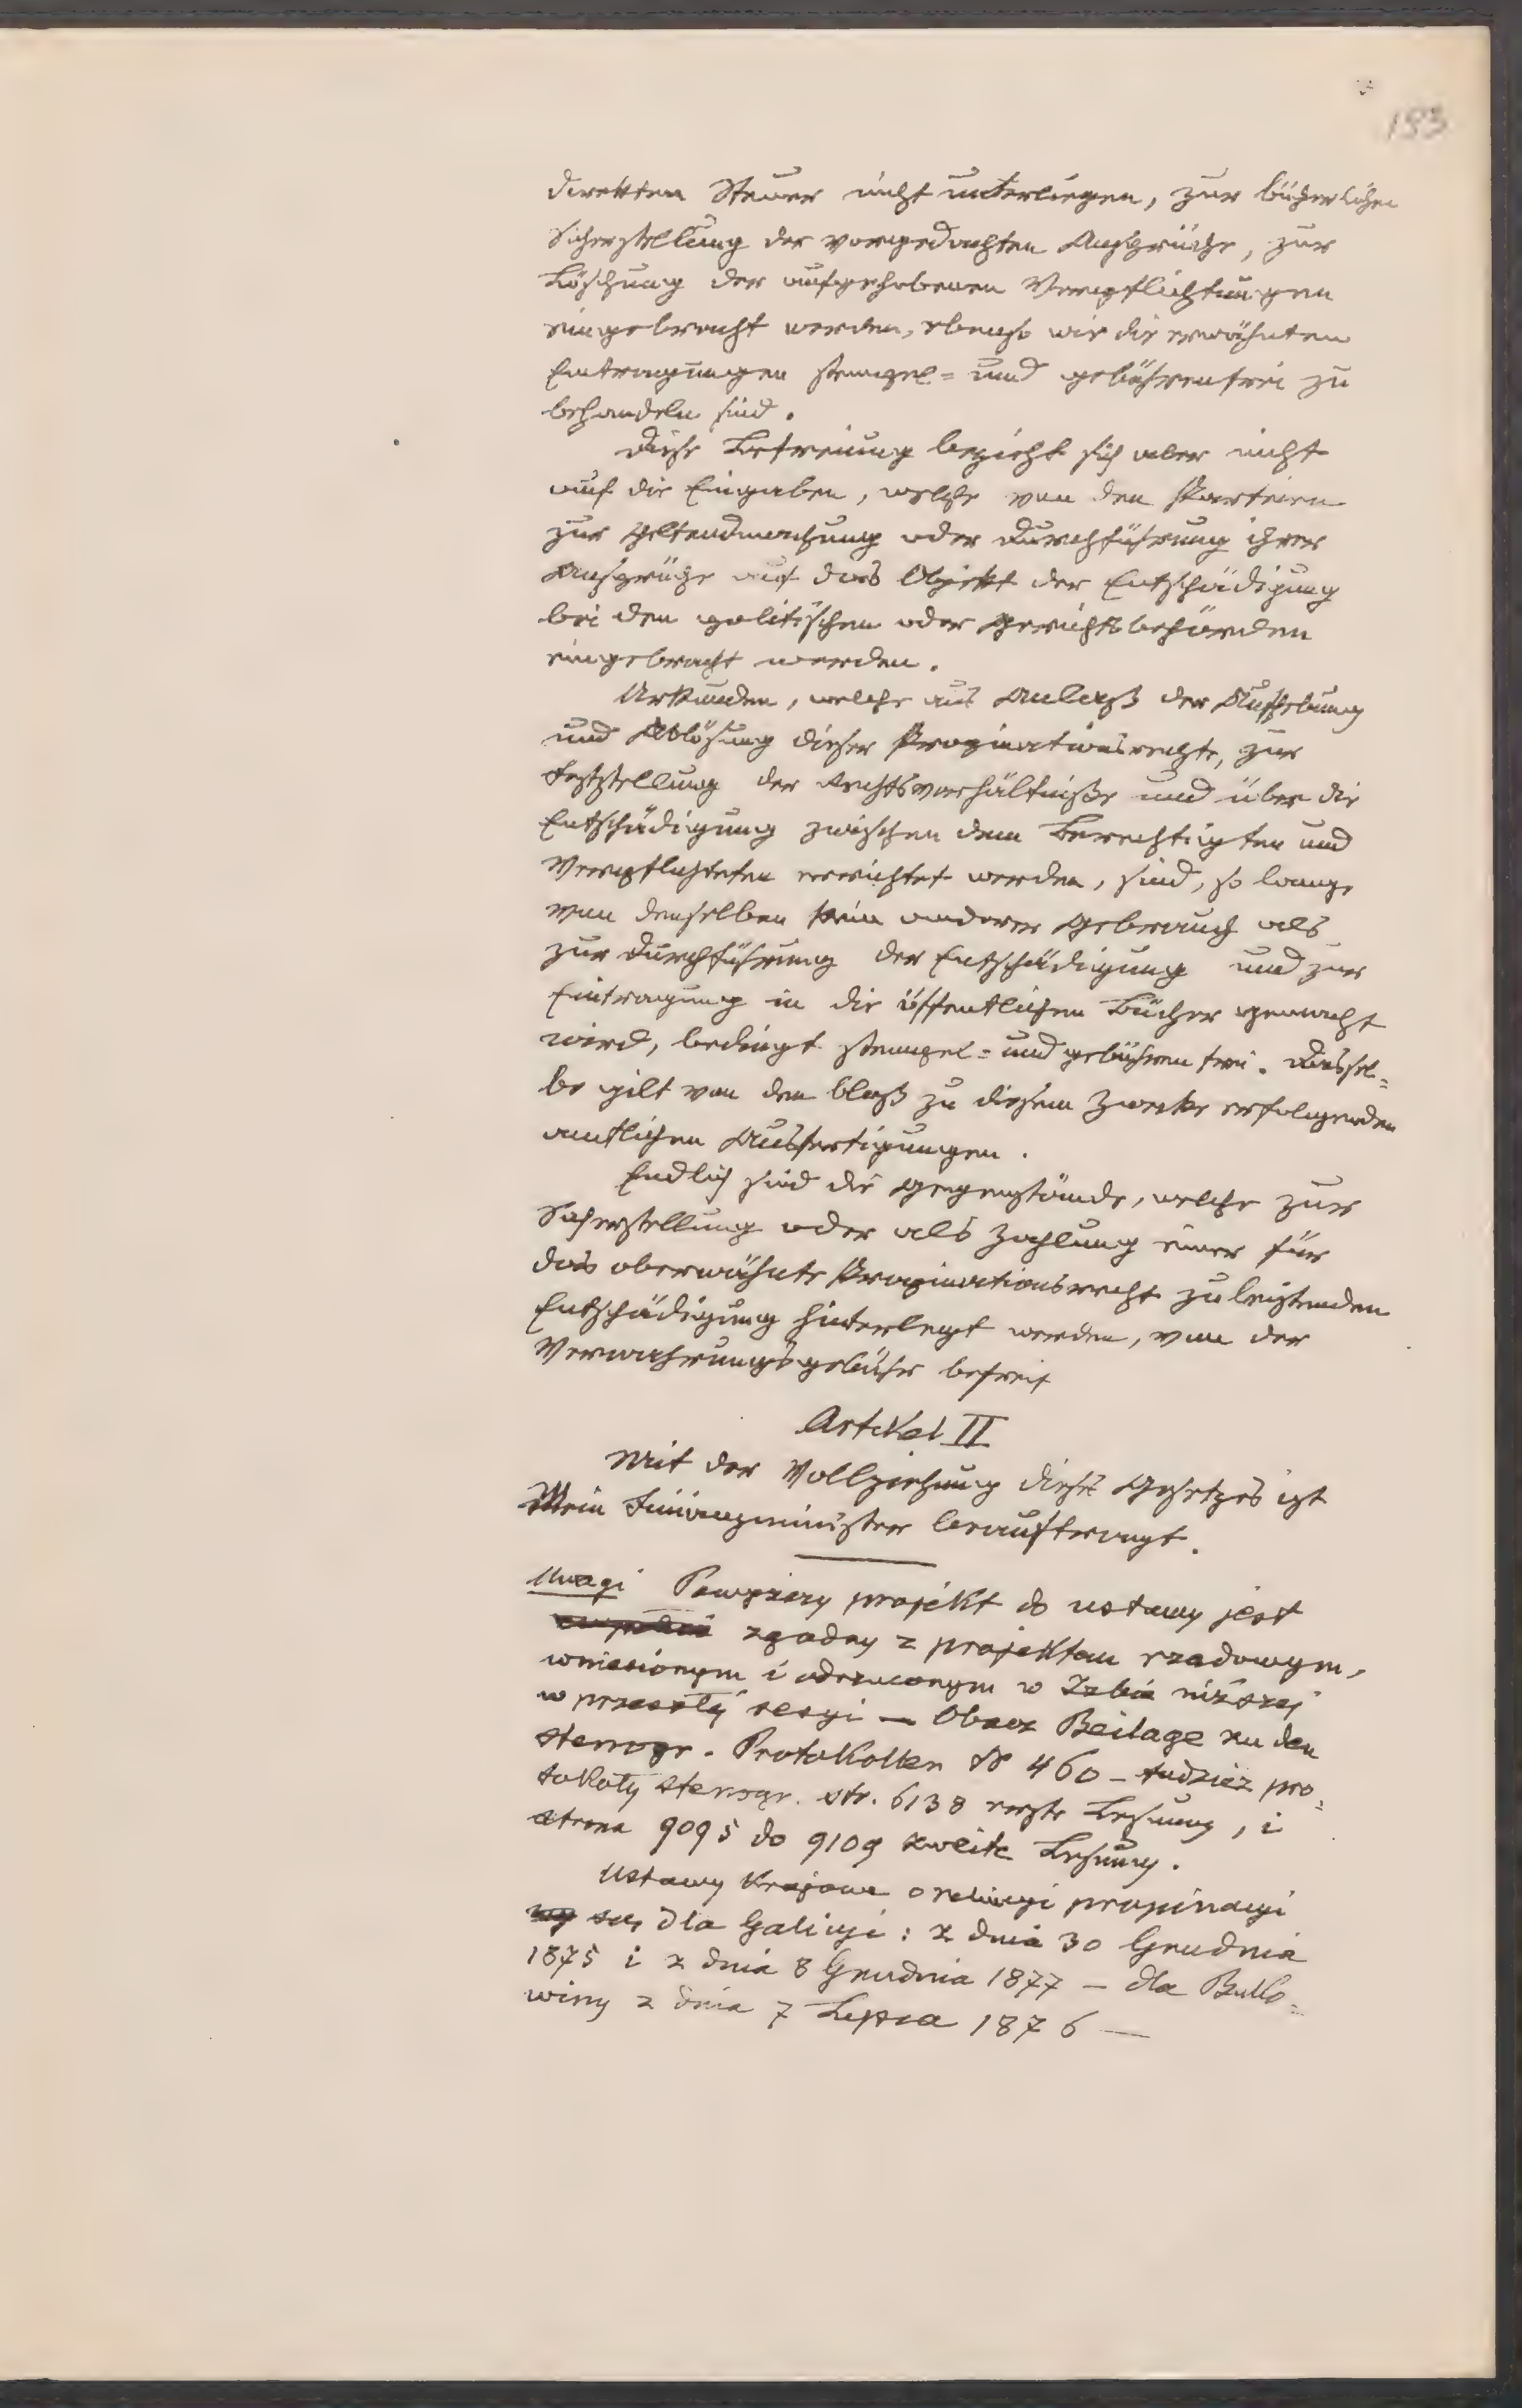 193
direkten Steuer nicht unterliegen, zur bücherlichen
Sicherstellung der vorgedachten Ansprüche, zur
Löschung der aufgehobenen Verpflichtungen
eingebracht werden, ebenso wie die erwähnten
Eintragungen stempel= und gebührenfrei zu
behandeln sind.
Diese Befreiung bezieht sich aber nicht
auf die Eingaben, welche von den Parteien
zur Geltendmachung oder Durchführung ihrer
Ansprüche auf das Objekt der Entschädigung
bei den politischen oder Gerichtsbehörden
eingebracht werden.
Urkunden, welche aus Anlaß der Aufhebung
und Ablösung dieser Propinationsrechte, zur
Feststellung der Rechtsverhältniße und über die
Entschädigung zwischen dem Berechtigten und
Verpflichteten errichtet werden, sind, so lange
von denselben kein anderer Gebrauch als
zur Durchführung der Entschädigung und zur
Eintragung in die öffentlichen Bücher gemacht
wird, bedingt stempel= und gebührenfrei. Dassel=
be gilt von den bloß zu diesem Zwecke erfolgenden
amtlichen Ausfertigungen.
Endlich sind die Gegenstände, welche zur
Sicherstellung oder als Zahlung einer für
das oberwähnte Propinationsrecht zu leistenden
Entschädigung hinterlegt werden, von der
Verwahrungsgebühr befreit
Artikel II
Mit der Vollziehung dieses Gesetzes ist
Mein Finanzminister beauftragt.
Uwagi Powyższy projekt do ustawy jest
zgodny z projektem rządowym,
wniesionym i odrzuconym w Izbie niższej
w przeszłej sesyi — Obacz Beilage zu den
stenogr. Protokollen № 460 – tudzież pro=
tokoły stenogr. str. 6138 erste Lesung, i
strona 9095 do 9109 zweite Lesung.
Ustawy krajowe o propinacyi
są dla Galicyi: z dnia 30 Grudnia
1875 i z dnia 8 Grudnia 1877 – dla Buko=
winy z dnia 7 Lipca 1876 —